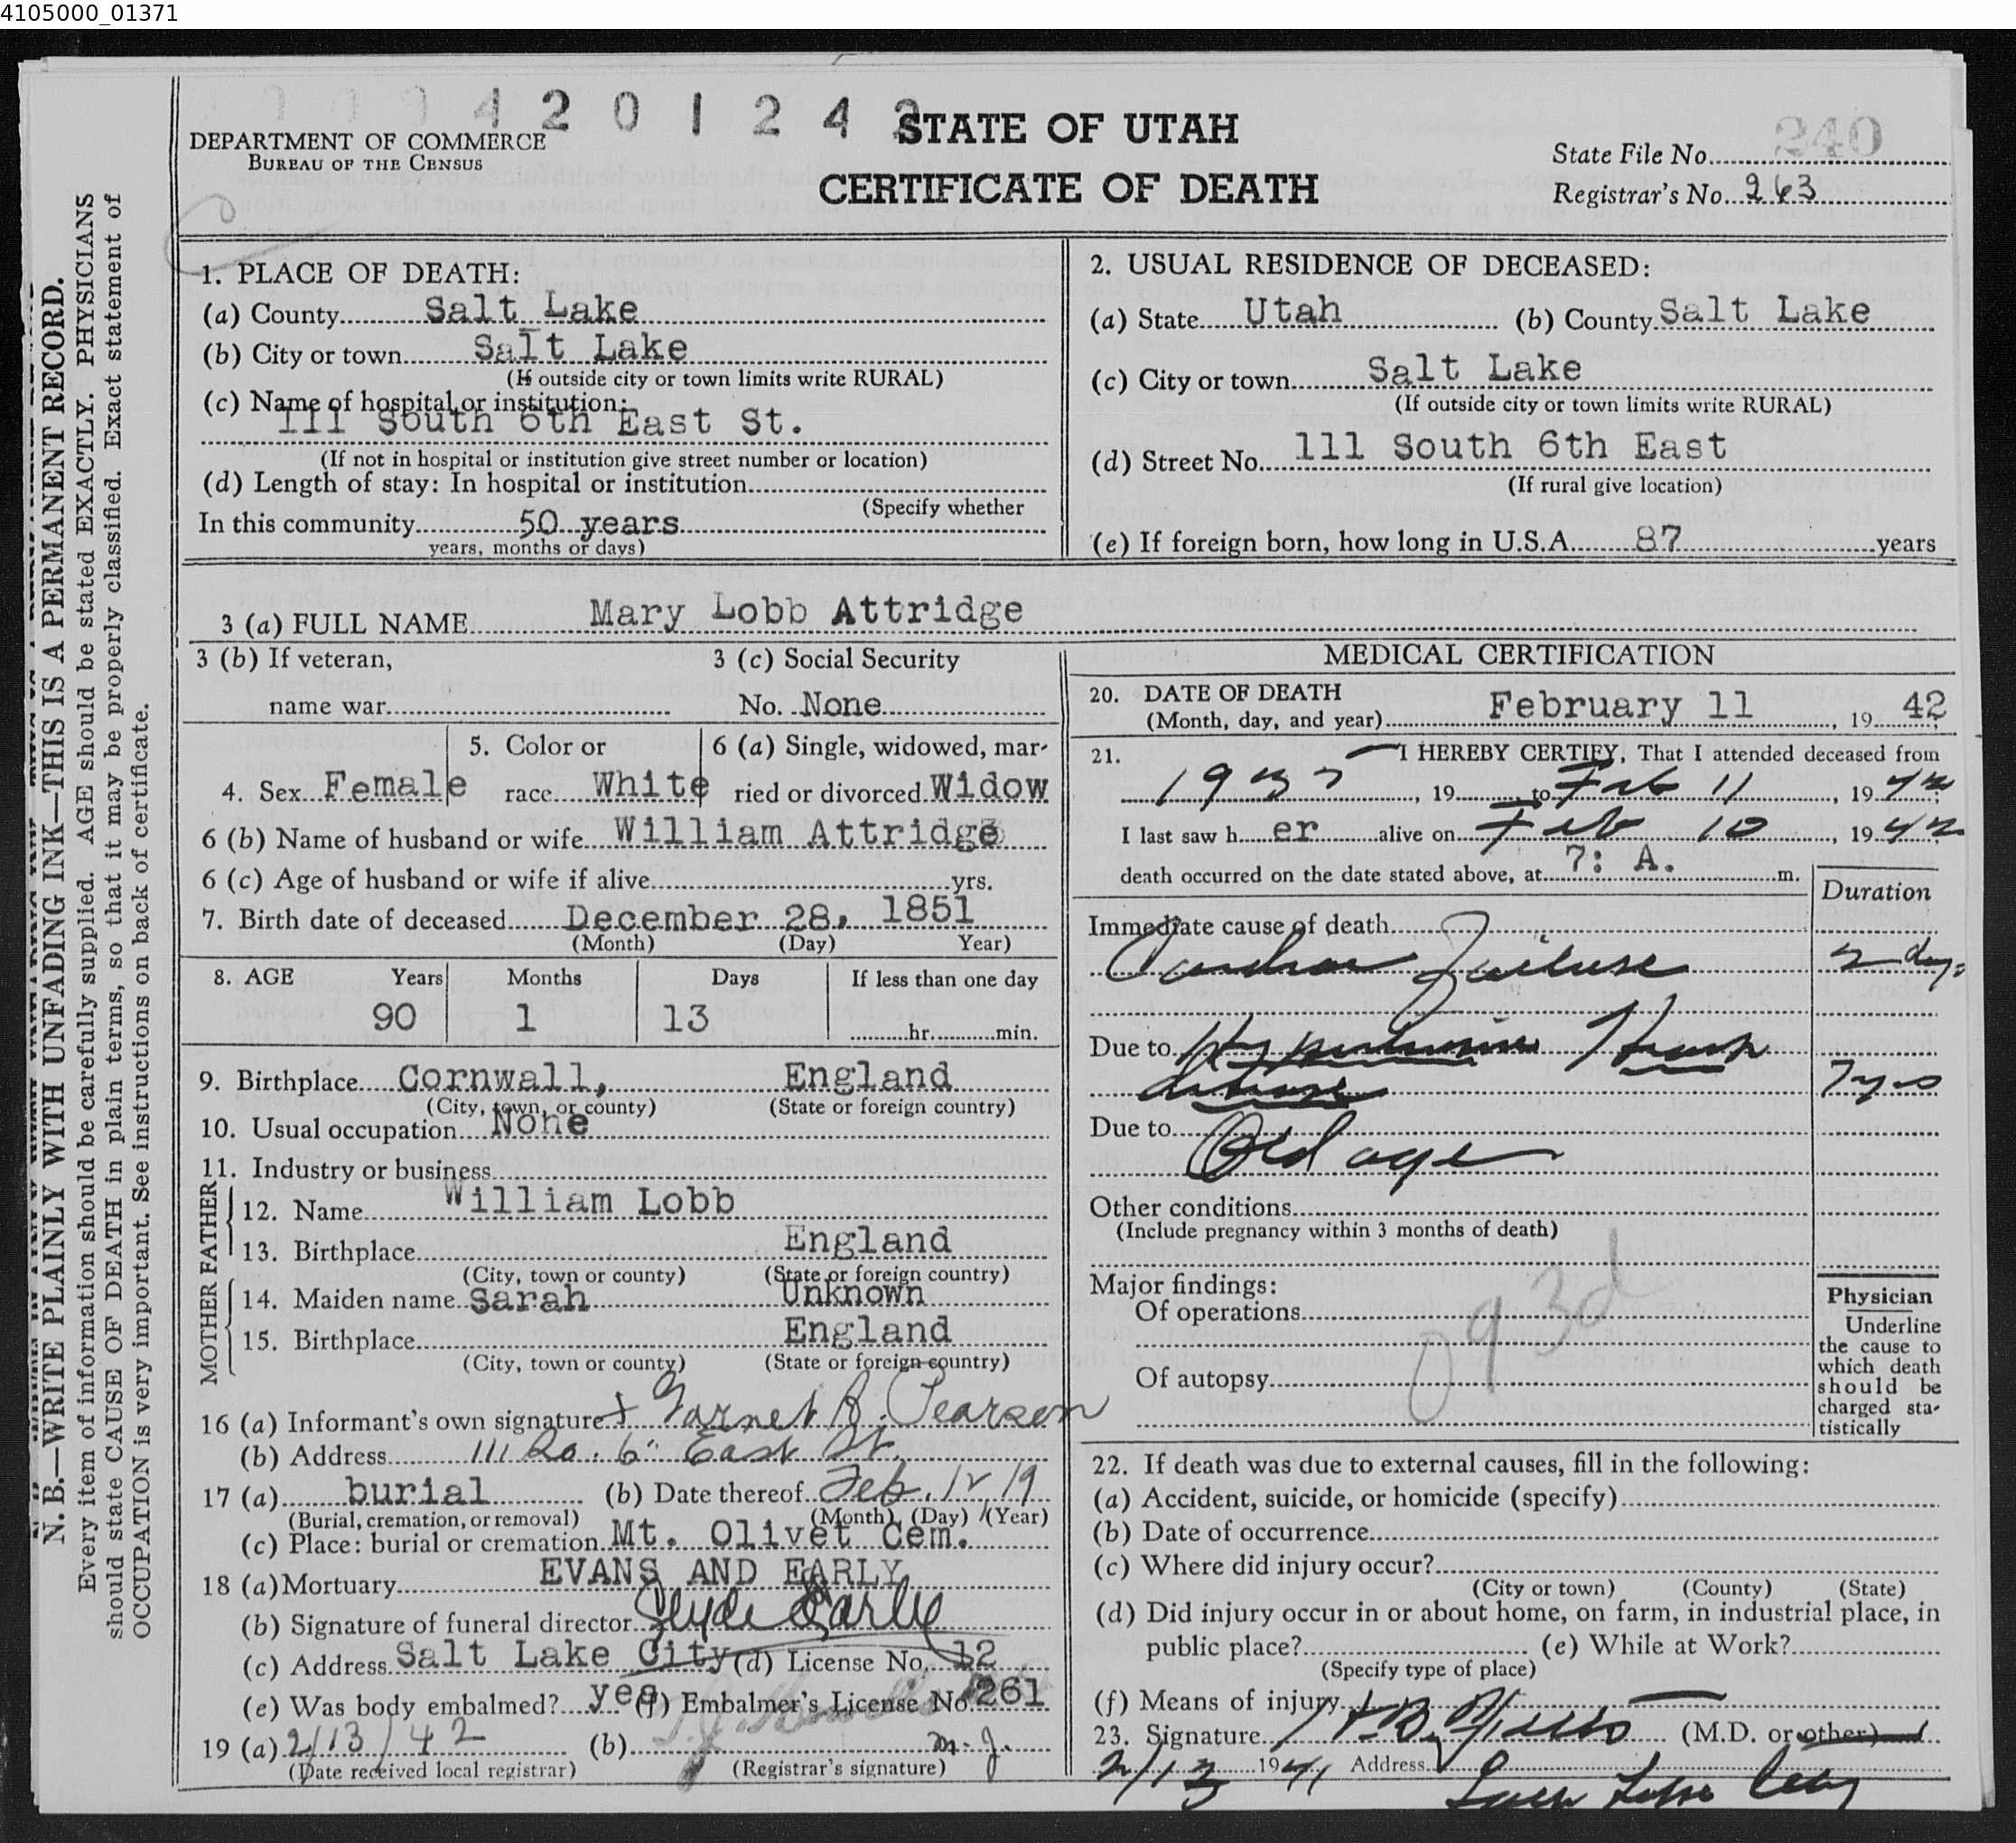 4105000_01371
4 2 0 1 2 4 2
DEPARTMENT OF COMMERCE
BUREAU OF THE CENSUS
STATE OF UTAH
CERTIFICATE OF DEATH
State File No. 240
Registrar's No. 263
N. B.—WRITE PLAINLY WITH UNFADING INK—THIS IS A PERMANENT RECORD.
Every item of information should be carefully supplied. AGE should be stated EXACTLY. PHYSICIANS
should state CAUSE OF DEATH in plain terms, so that it may be properly classified. Exact statement of
OCCUPATION is very important. See instructions on back of certificate.
1. PLACE OF DEATH:
(a) County Salt Lake
(b) City or town Salt Lake
(If outside city or town limits write RURAL)
(c) Name of hospital or institution:
111 South 6th East St.
(If not in hospital or institution give street number or location)
(d) Length of stay: In hospital or institution
(Specify whether
In this community 50 years
years, months or days)
2. USUAL RESIDENCE OF DECEASED:
(a) State Utah (b) County Salt Lake
(c) City or town Salt Lake
(If outside city or town limits write RURAL)
(d) Street No. 111 South 6th East
(If rural give location)
(e) If foreign born, how long in U.S.A. 87 years
3 (a) FULL NAME Mary Lobb Attridge
3 (b) If veteran,
name war
3 (c) Social Security
No. None
4. Sex Female
5. Color or
race White
6 (a) Single, widowed, mar-
ried or divorced Widow
6 (b) Name of husband or wife William Attridge
6 (c) Age of husband or wife if alive yrs.
7. Birth date of deceased December 28, 1851
(Month) (Day) Year)
8. AGE Years Months Days If less than one day
90 1 13 hr. min.
9. Birthplace Cornwall, England
(City, town, or county) (State or foreign country)
10. Usual occupation None
11. Industry or business
FATHER
12. Name William Lobb
13. Birthplace England
(City, town or county) (State or foreign country)
MOTHER
14. Maiden name Sarah Unknown
15. Birthplace England
(City, town or county) (State or foreign country)
16 (a) Informant's own signature + Garnet B. Pearson
(b) Address 111 So. 6" East St.
17 (a) burial (b) Date thereof Feb. 12 19
(Burial, cremation, or removal) (Month) (Day) (Year)
(c) Place: burial or cremation Mt. Olivet Cem.
18 (a) Mortuary EVANS AND EARLY
(b) Signature of funeral director Clyde Early
(c) Address Salt Lake City (d) License No. 12
(e) Was body embalmed? yes (f) Embalmer's License No. 261
19 (a) 2/13/42 (b) m. J.
(Date received local registrar) (Registrar's signature)
MEDICAL CERTIFICATION
20. DATE OF DEATH
(Month, day, and year) February 11 19 42
21. I HEREBY CERTIFY, That I attended deceased from
1937, 19 to Feb 11, 19 42
I last saw h er alive on Feb 10, 19 42
death occurred on the date stated above, at 7: A. m.
Duration
Immediate cause of death
Cardiac Failure 2 days
Due to Hypertensive Heart
disease 7 yrs
Due to Old age
Other conditions
(Include pregnancy within 3 months of death)
Major findings:
Of operations
Of autopsy
093d
Physician
Underline
the cause to
which death
should be
charged sta-
tistically
22. If death was due to external causes, fill in the following:
(a) Accident, suicide, or homicide (specify)
(b) Date of occurrence
(c) Where did injury occur?
(City or town) (County) (State)
(d) Did injury occur in or about home, on farm, in industrial place, in
public place? (e) While at Work?
(Specify type of place)
(f) Means of injury
23. Signature (M.D. or other)
2/13 1941 Address
Salt Lake City